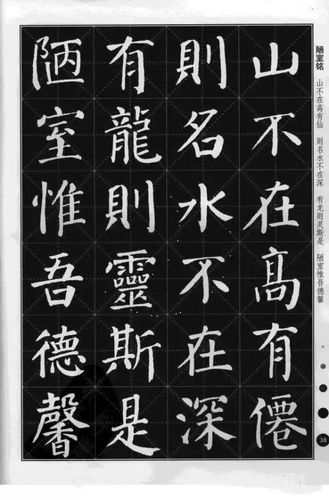 陋室铭 山不在高有仙 则名水不在深 有龙则灵斯是 陋室惟吾德馨
山不在高有僊
則名水不在深
有龍則靈斯是
陋室惟吾德馨
38